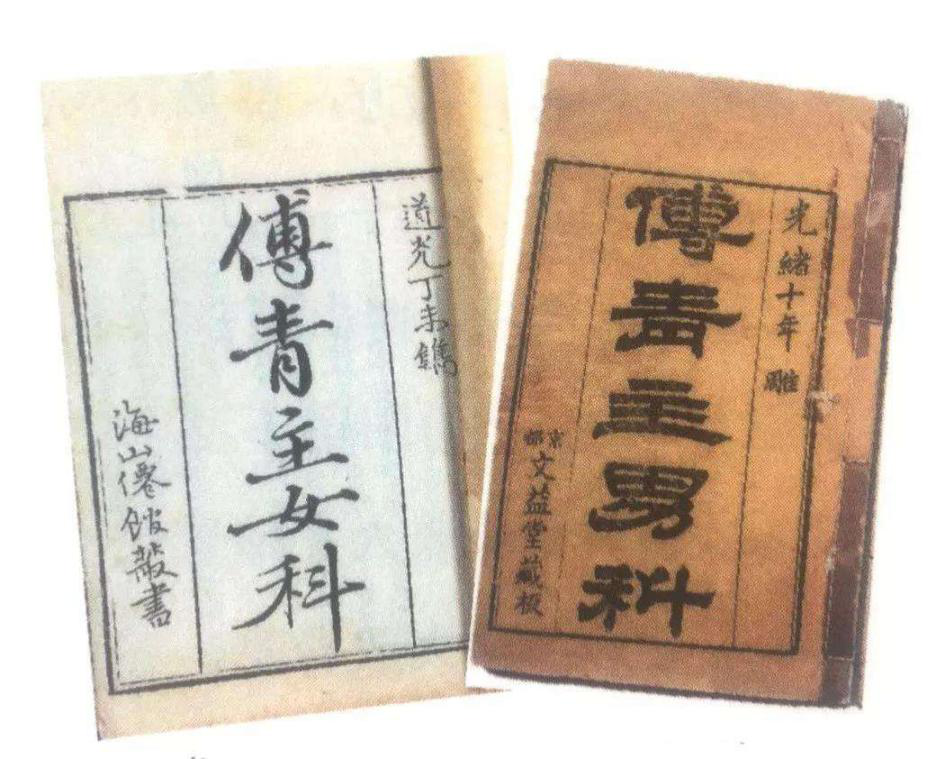 道光丁未鐫
傅青主女科
海山僊館叢書
光緒十年雕
傅青主男科
京都
文益堂藏板